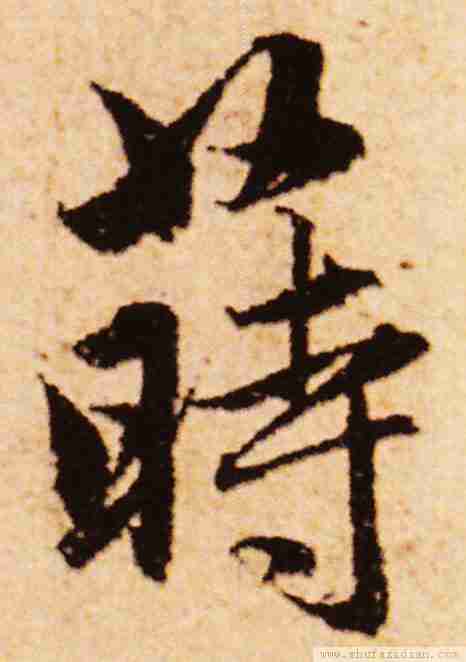 蒔
www.shufazidian.com